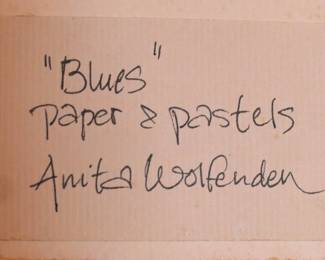 "Blues"
paper & pastels
Anita Wolfenden